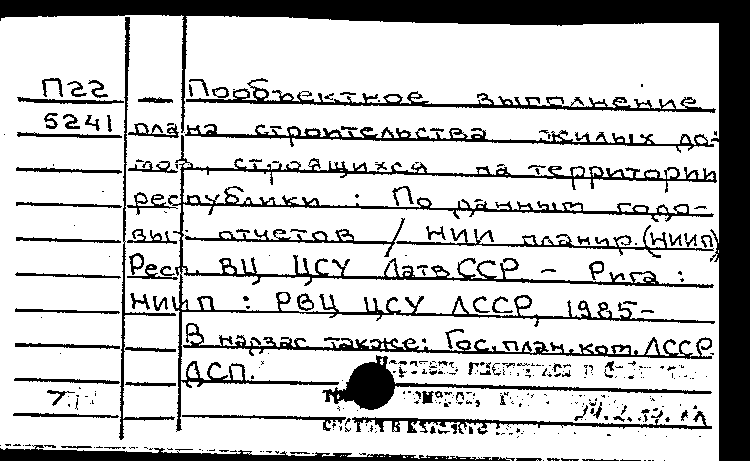 П22 — Пообъектное выполнение
5241 плана строительства жилых до-
мов, строящихся на территории
республики : По данным годо-
вых отчетов / НИИ планир.(НИИП)
Респ. ВЦ ЦСУ ЛатвССР – Рига :
НИИП : РВЦ ЦСУ ЛССР, 1985–
В надзаг также: Гос.план.ком.ЛССР
ДСП.
номеров,
7